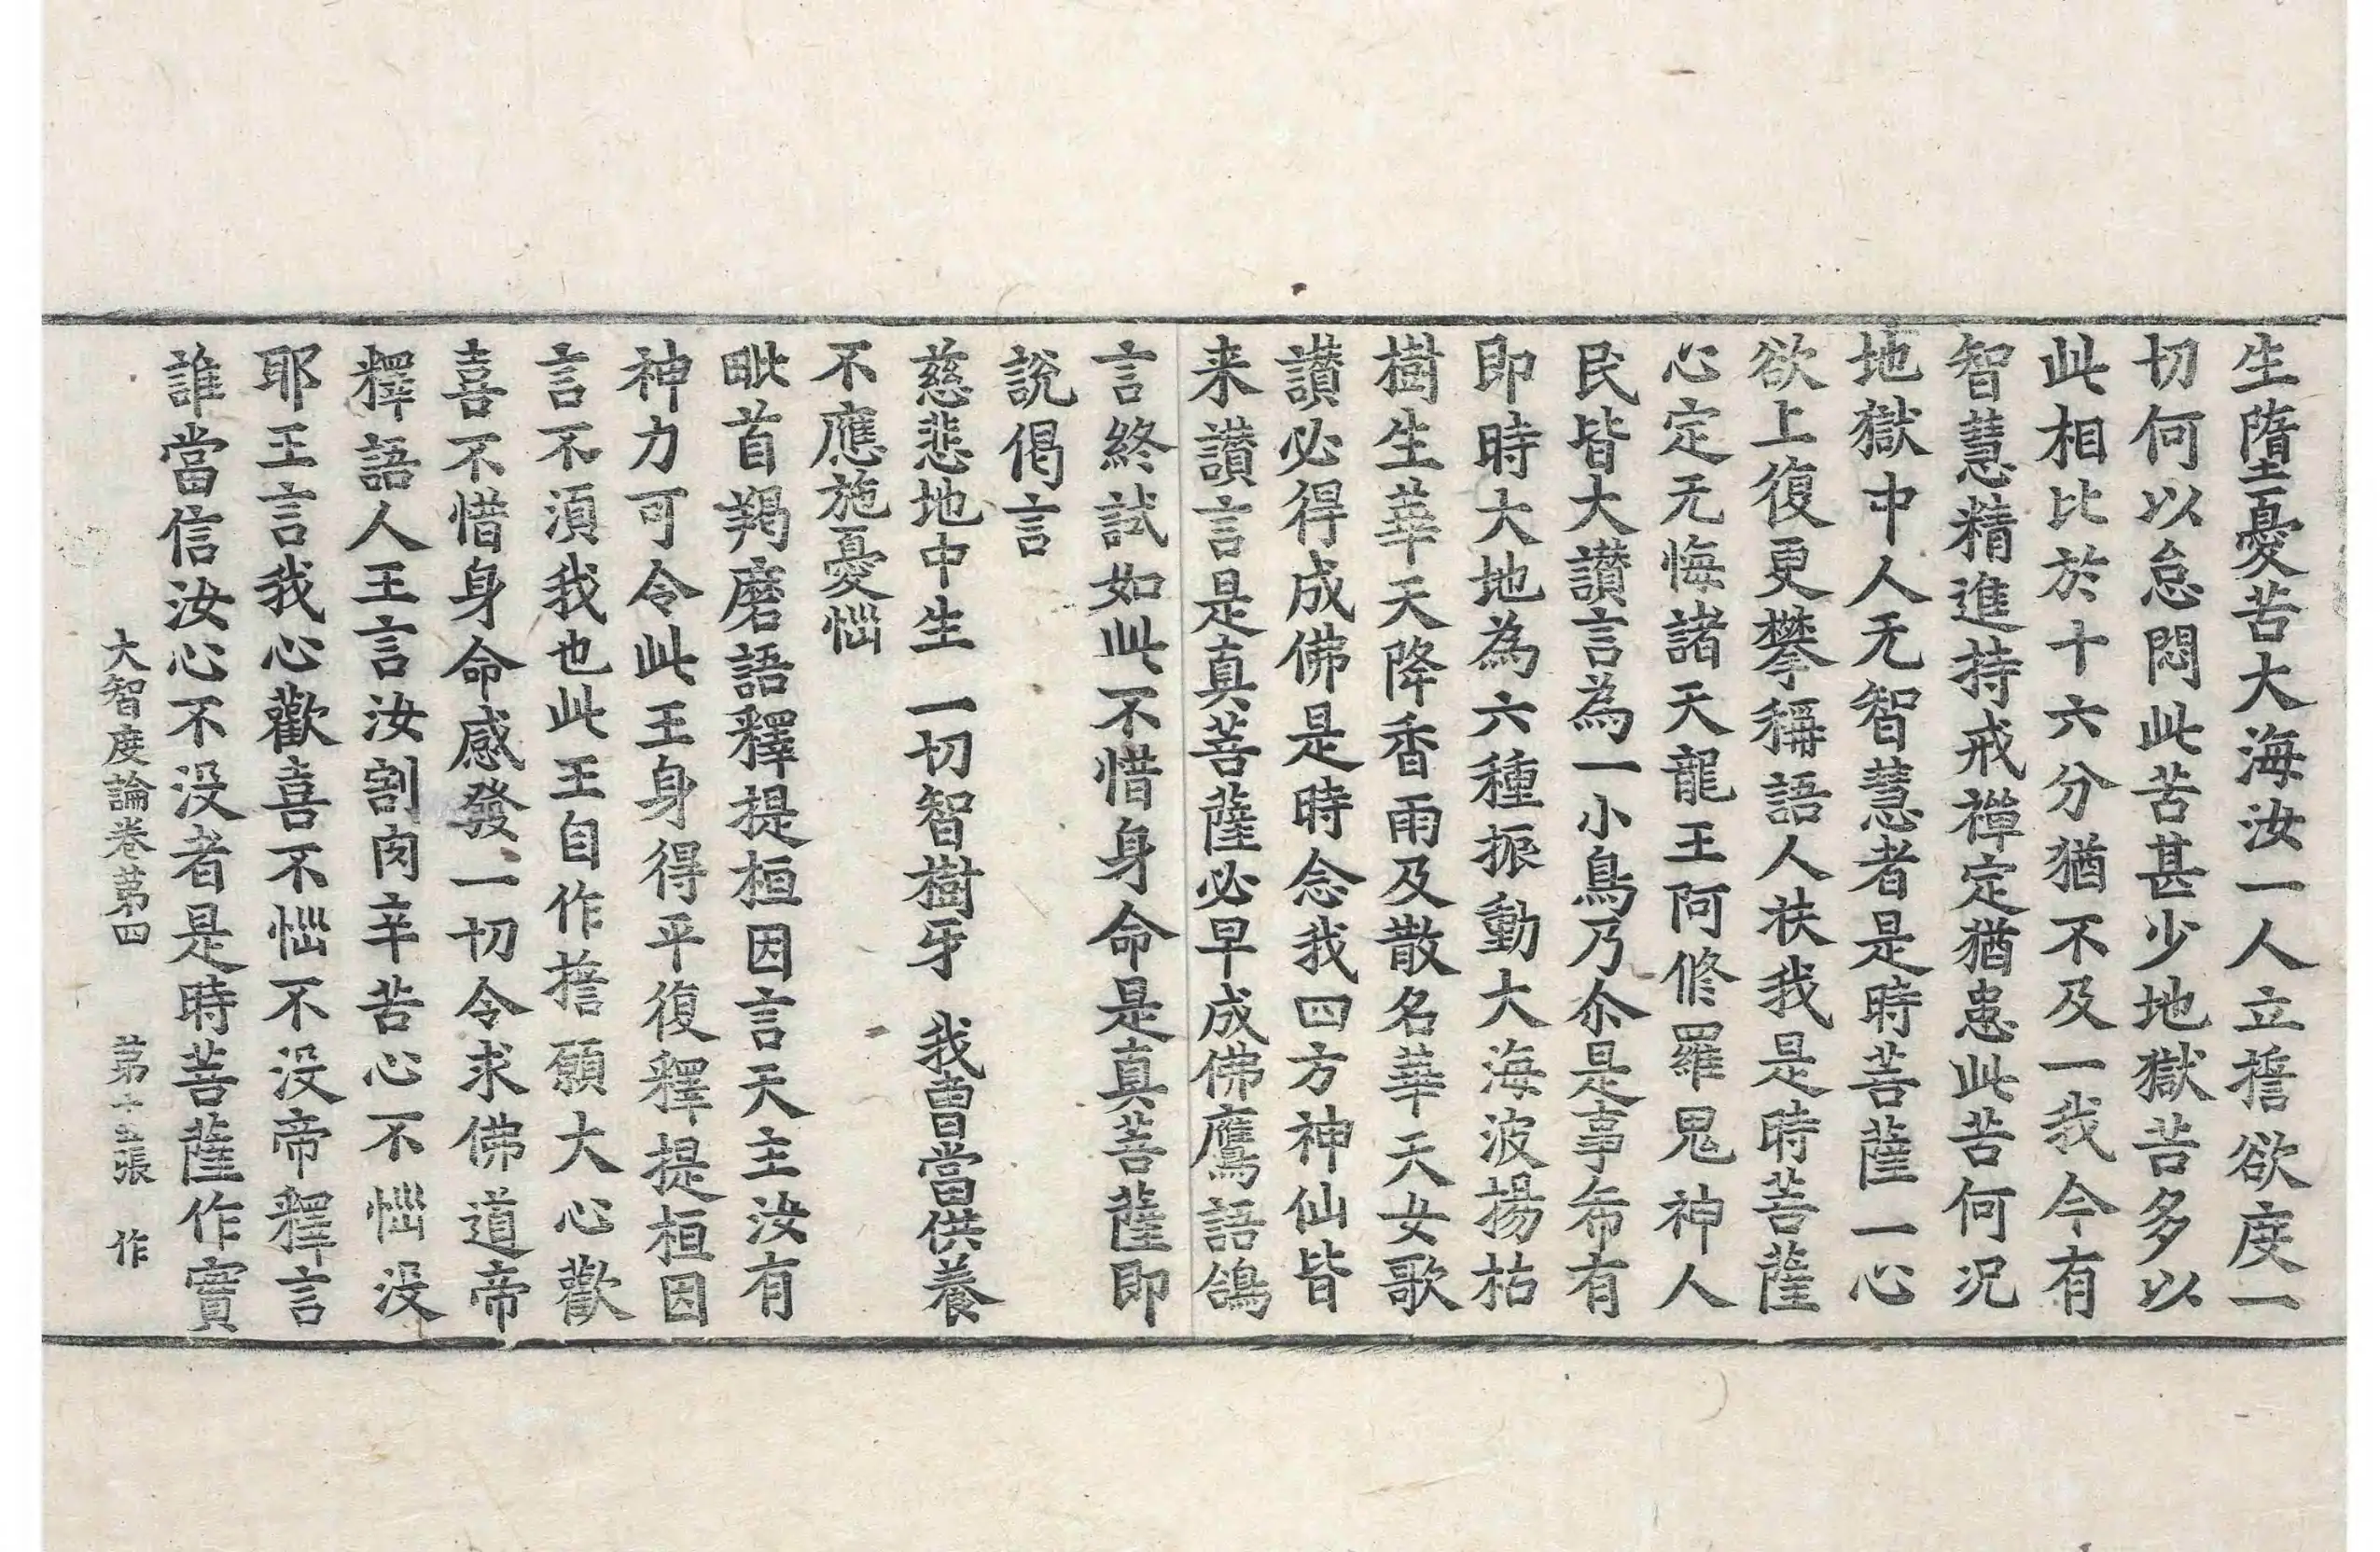 生墮憂苦大海汝一人立誓欲度一
切何以怠悶此苦甚少地獄苦多以
此相比於十六分猶不及一我今有
智慧精進持戒禪定猶患此苦何況
地獄中人无智慧者是時菩薩一心
欲上復更攀稱語人扶我是時菩薩
心定无悔諸天龍王阿修羅鬼神人
民皆大讃言為一小鳥乃尒是事希有
即時大地為六種振動大海波揚枯
樹生華天降香雨及散名華天女歌
讃必得成佛是時念我四方神仙皆
来讃言是真菩薩必早成佛鷹語鴿
言終試如此不惜身命是真菩薩即
說偈言
慈悲地中生 一切智樹牙 我曹當供養
不應施憂惱
毗首羯磨語釋提桓因言天主汝有
神力可令此王身得平復釋提桓因
言不須我也此王自作誓願大心歡
喜不惜身命感發一切令求佛道帝
釋語人王言汝割肉辛苦心不惱没
耶王言我心歡喜不惱不没帝釋言
誰當信汝心不没者是時菩薩作實
大智度論卷第四 第十五張 作